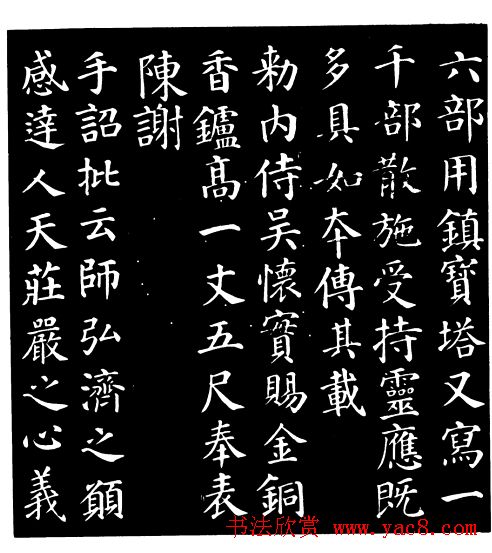 六部用鎮寶塔又寫一
千部散施受持靈應既
多具如本傳其載
勑内侍吴懷實賜金銅
香鑪高一丈五尺奉表
陳謝
手詔批云師弘濟之願
感達人天莊嚴之心義
书法欣赏 www.yac8.com